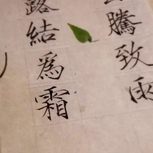 騰致雨
露結為霜